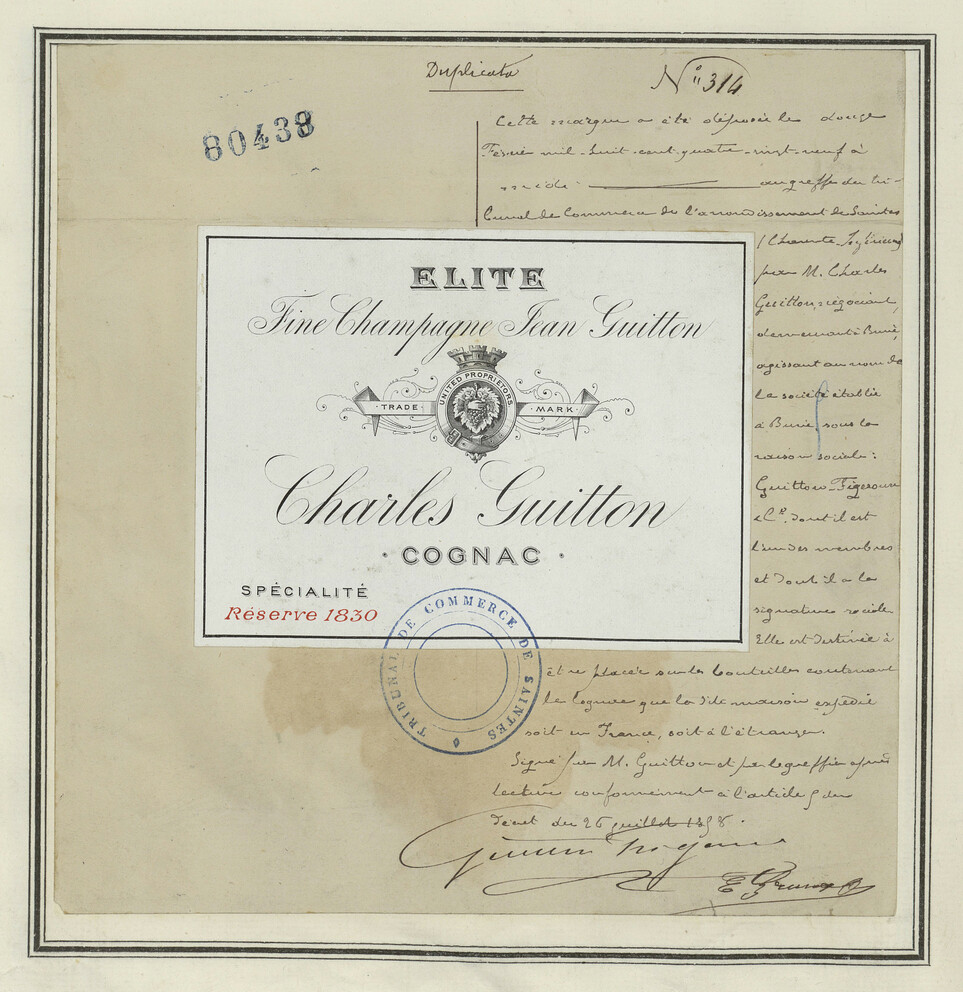 Duplicata
N° 314
80438
Cette marque a été déposée le douze
Février mil-huit-cent-quatre-vingt-neuf à
midi au greffe du tri-
bunal de Commerce de l'arrondissement de Saintes
(Charente Inférieure)
par M. Charles
Guitton, négociant,
demeurant à Burie,
agissant au nom de
la société établie
à Burie, sous la
raison sociale:
Guitton
& Cie. dont il est
l'un des membres
et dont il a la
signature sociale
Elle est destinée à
être placée sur les bouteilles contenant
le cognac que la dite maison expédie
soit en France, soit à l'étranger.
Signé par M. Guitton et par le greffier après
lecture conformément à l'article 5 du
décret du 26 juillet 1858.
ELITE
Fine Champagne Jean Guitton
UNITED PROPRIETORS
TRADE MARK
Charles Guitton
· COGNAC ·
SPÉCIALITÉ
Réserve 1830
TRIBUNAL DE COMMERCE DE SAINTES